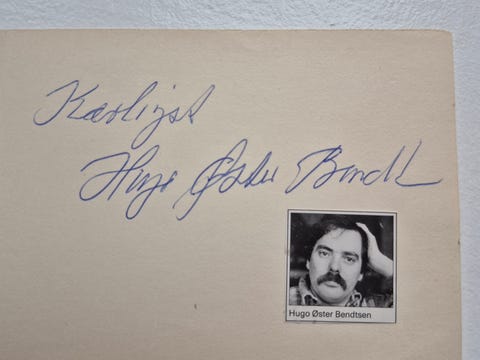 Kærligst
Hugo Øster Bendtsen
Hugo Øster Bendtsen